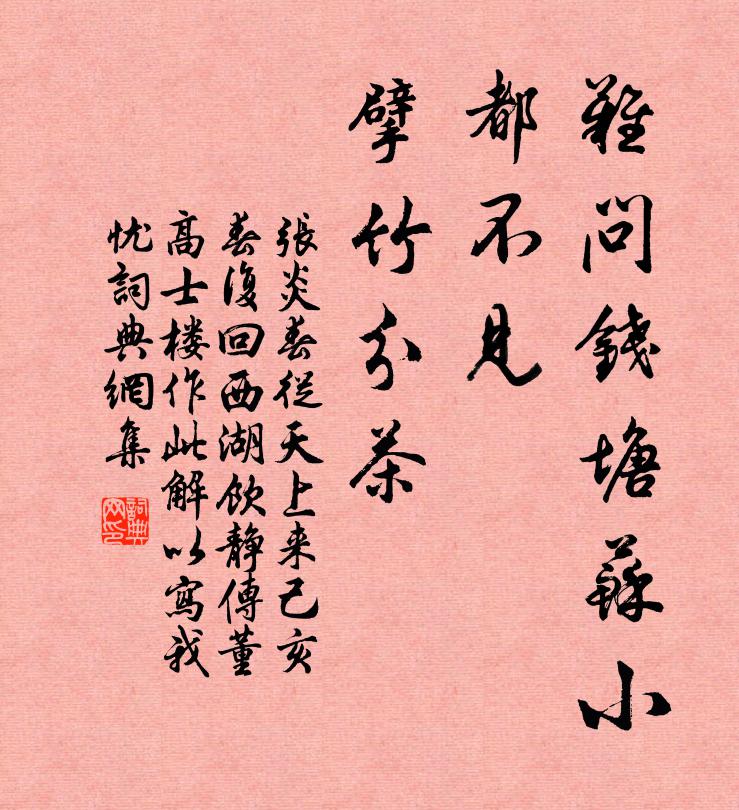 難問錢塘蘇小
都不見
擘竹分茶
張炎春從天上来己亥
春復回西湖飲静傳董
高士楼作此解以寫我
忧詞典網集
詞典
网印